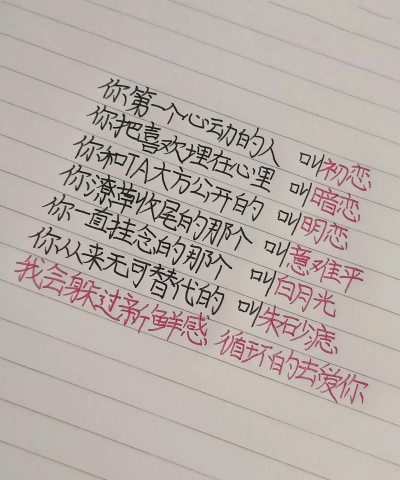 你第一个心动的人 叫初恋
你把喜欢埋在心里 叫暗恋
你和TA大方公开的 叫明恋
你潦草收尾的那个 叫意难平
你一直挂念的那个 叫白月光
你从来无可替代的 叫朱砂痣
我会躲过新鲜感 循环的去爱你